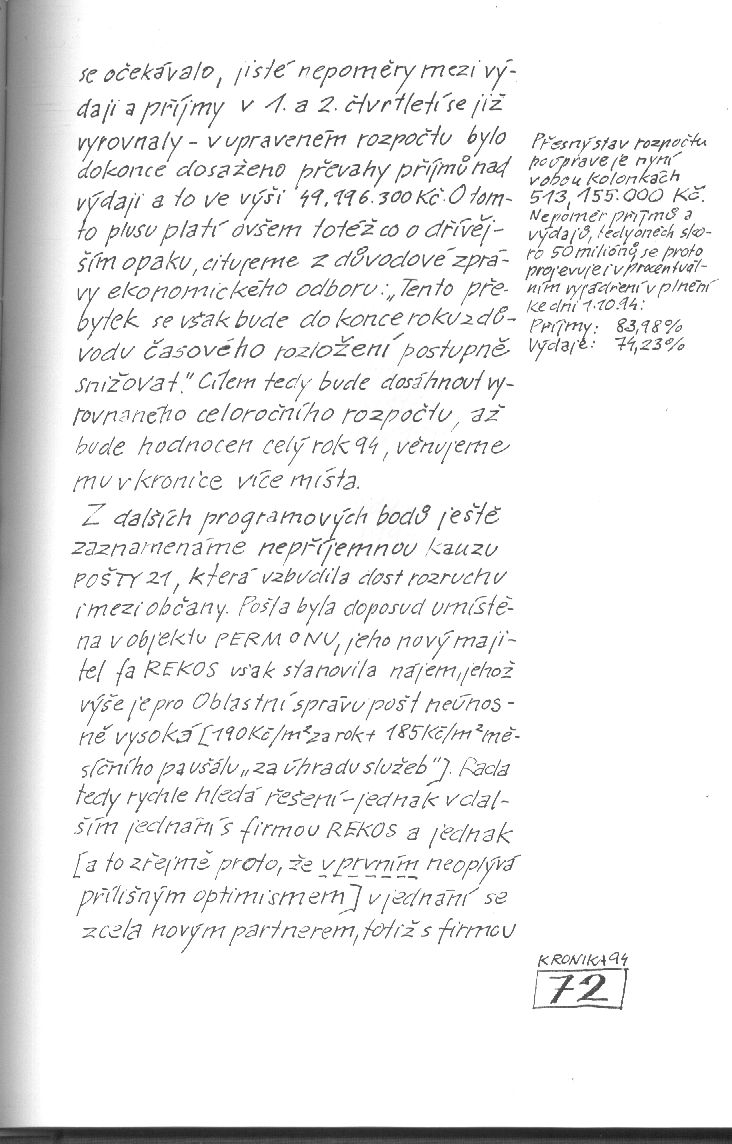 se očekávalo, jisté nepoměry mezi vý-
daji a příjmy v 1. a 2. čtvrtletí se již
vyrovnaly - v upraveném rozpočtu bylo
dokonce dosaženo převahy příjmů nad
výdaji a to ve výši 49.196.300 Kč. O tom-
to plusu platí ovšem totéž co o dřívěj-
ším opaku, citujeme z důvodové zprá-
vy ekonomického odboru: „Tento pře-
bytek se však bude do konce roku z dů-
vodu časového rozložení postupně
snižovat." Cílem tedy bude dosáhnout vy-
rovnaného celoročního rozpočtu, až
bude hodnocen celý rok 94, věnujeme
mu v kronice více místa.
Z dalších programových bodů ještě
zaznamenáme nepříjemnou kauzu
POŠTY 21, která vzbudila dost rozruchu
i mezi občany. Pošta byla doposud umístě-
na v objektu PERMONU, jeho nový maji-
tel fa REKOS však stanovila nájem, jehož
výše je pro Oblastní správu pošt neúnos-
ně vysoká [190 Kč/m² za rok + 185 Kč/m² mě-
síčního paušálu „za úhradu služeb"]. Rada
tedy rychle hledá řešení - jednak v dal-
ším jednání s firmou REKOS a jednak
[a to zřejmě proto, že v prvním neoplývá
přílišným optimismem] v jednání se
zcela novým partnerem, totiž s firmou
Přesný stav rozpočtu
po úpravě je nyní
v obou kolonkách
513,155.000 Kč.
Nepoměr příjmů a
výdajů, tedy oněch sko-
ro 50 miliónů se proto
projevuje i v procentuál-
ním vyjádření v plnění
ke dni 1.10.94:
Příjmy: 83,98%
Výdaje: 74,23%
KRONIKA 94
72